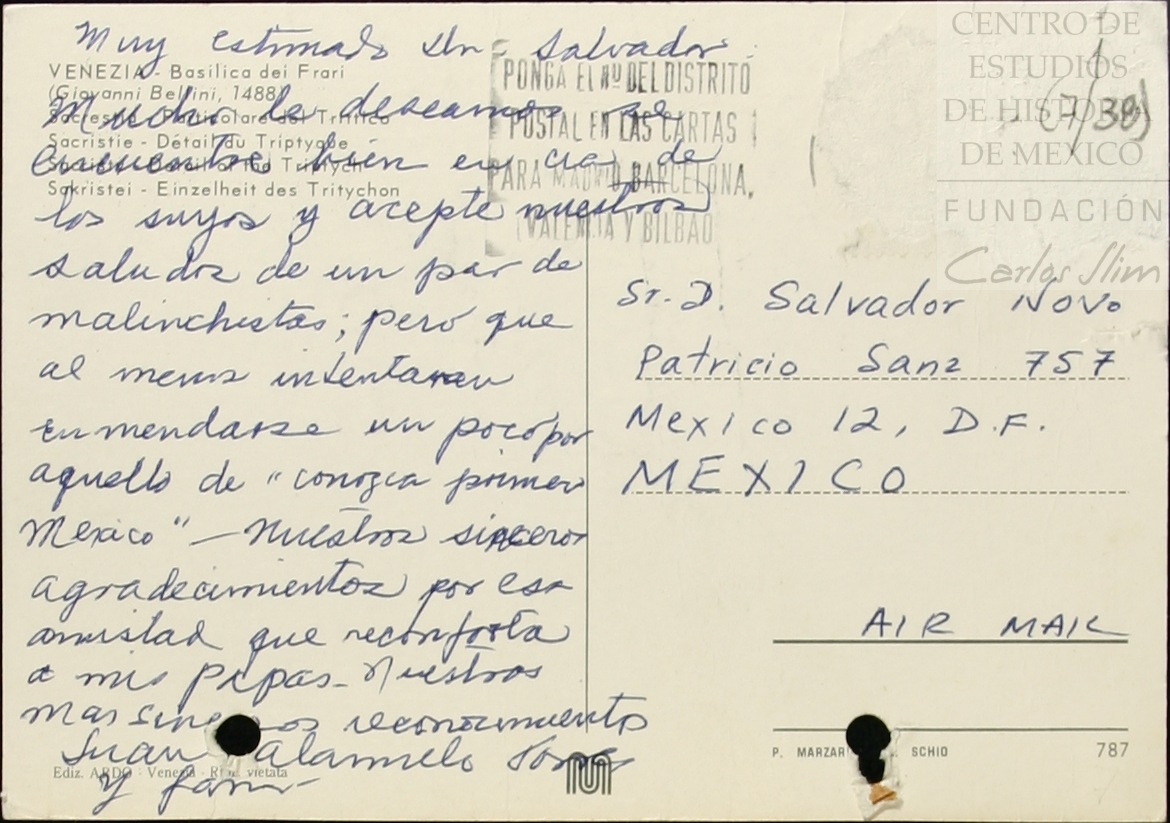 Muy estimado Dn. Salvador
VENEZIA - Basilica dei Frari
(Giovanni Bellini, 1488)
Sacrestia - Particolare del Trittico
Sacristie - Détail du Triptyque
Detail of the Triptych
Sakristei - Einzelheit des Tritychon
Mucho le deseamos se
encuentre bien en cia de
los suyos y acepte nuestros
saludos de un par de
malinchistas; pero que
al menos intentaran
enmendarse un poco por
aquello de "conozca primero
Mexico" — Nuestros sinceros
agradecimientos por esa
amistad que reconforta
a mis papas - Nuestros
mas sinceros reconocimientos
Juan
y fam
Ediz. ARDO - Venezia - Ris. vietata
PONGA EL Nº DEL DISTRITO
POSTAL EN LAS CARTAS
PARA MADRID, BARCELONA,
VALENCIA Y BILBAO
CENTRO DE
ESTUDIOS
DE HISTORIA
DE MEXICO
FUNDACIÓN
Carlos Slim
Sr. D. Salvador Novo
Patricio Sanz 757
Mexico 12, D.F.
MEXICO
AIR MAIL
P. MARZARI SCHIO
787